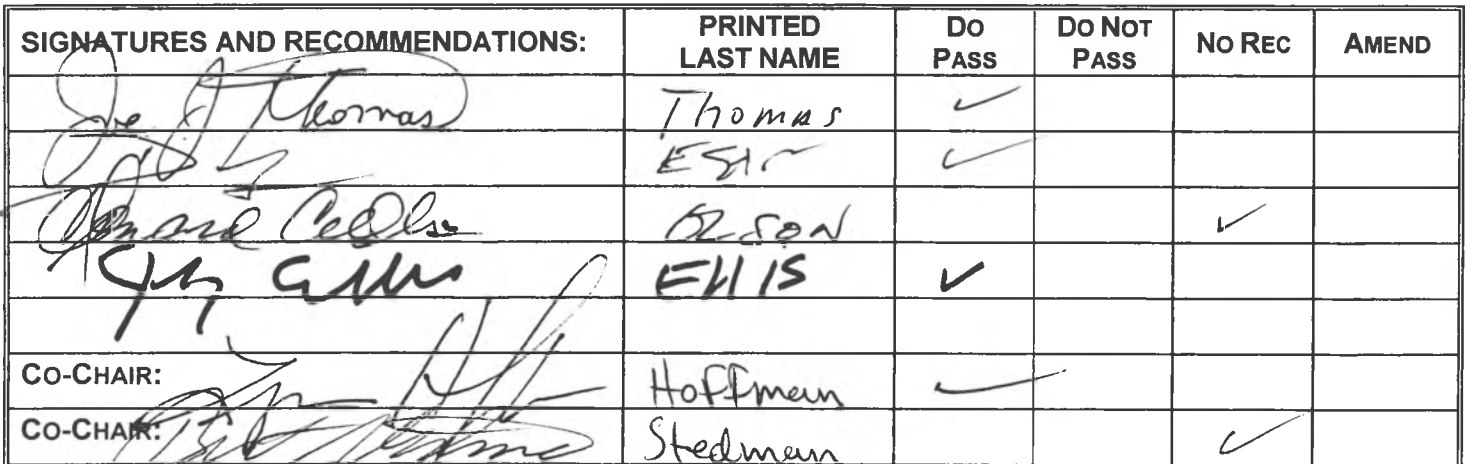 SIGNATURES AND RECOMMENDATIONS: PRINTED LAST NAME DO PASS DO NOT PASS NO REC AMEND
Joe J Thomas Thomas ✓
✓
Olson ✓
Ellis ✓
CO-CHAIR: Hoffman ✓
CO-CHAIR: Stedman ✓